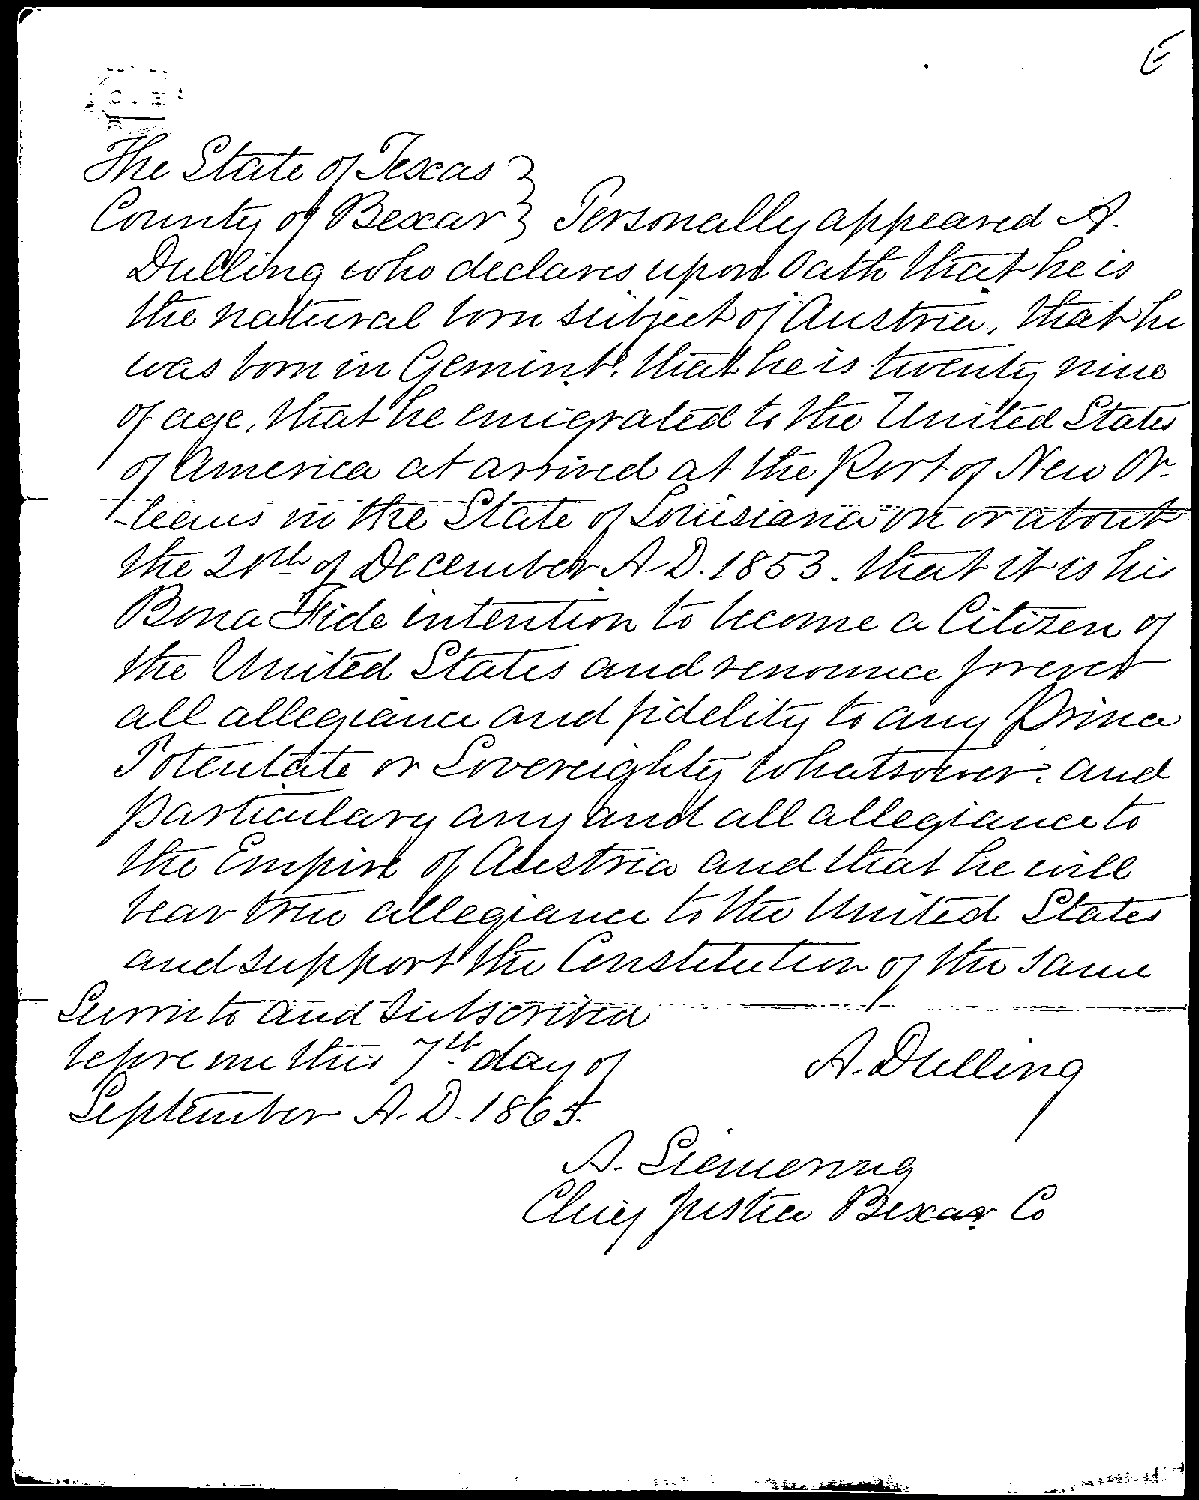 The State of Texas }
County of Bexar } Personally appeared A.
Dulling who declares upon Oath that he is
the natural born subject of Austria, that he
was born in Gemint. that he is twenty nine
of age, that he emigrated to the United States
of America at arrived at the Port of New Or-
-leans in the State of Louisiana on or about
the 20th of December A D. 1853. that it is his
Bona Fide intention to become a Citizen of
the United States and renounce forever
all allegiance and fidelity to any Prince
Potentate or Sovereighty whatsoever. and
particulary any and all allegiance to
the Empire of Austria and that he will
bear true allegiance to the United States
and support the Constitution of the same
Surn to and Subscribed
before me this 7th day of
September A. D. 1865.
A. Dulling
A. Siemering
Chief Justice Bexar Co